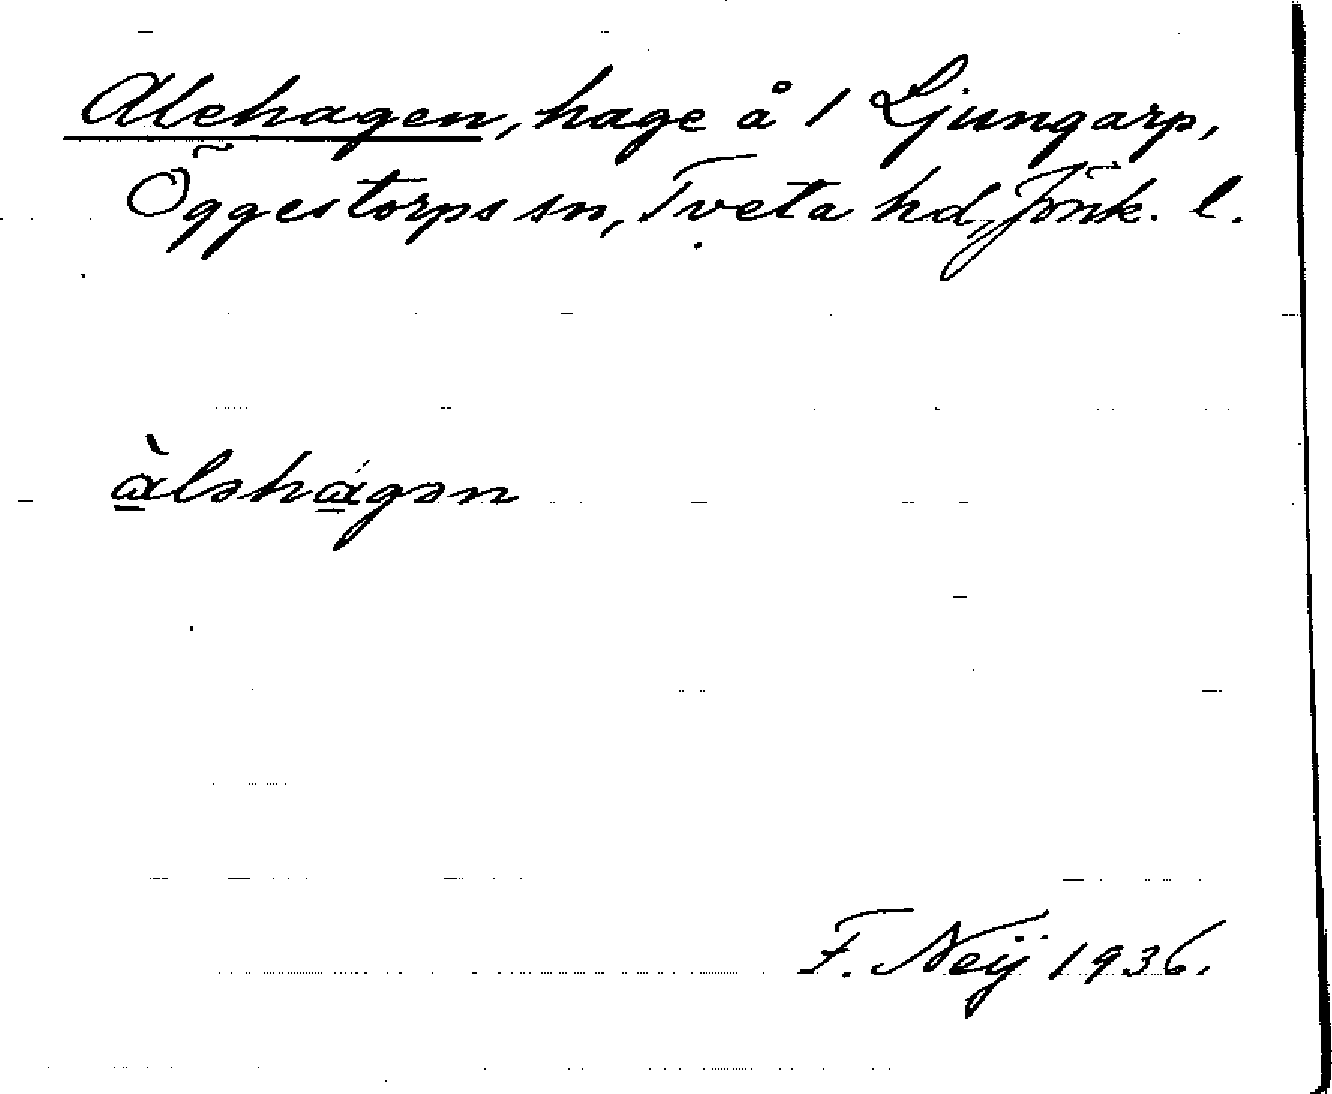 Alehagen, hage å 1 Ljungarp,
Öggestorps sn, Tveta hd, Jönk. l.
àləhágən
F. Neij 1936.